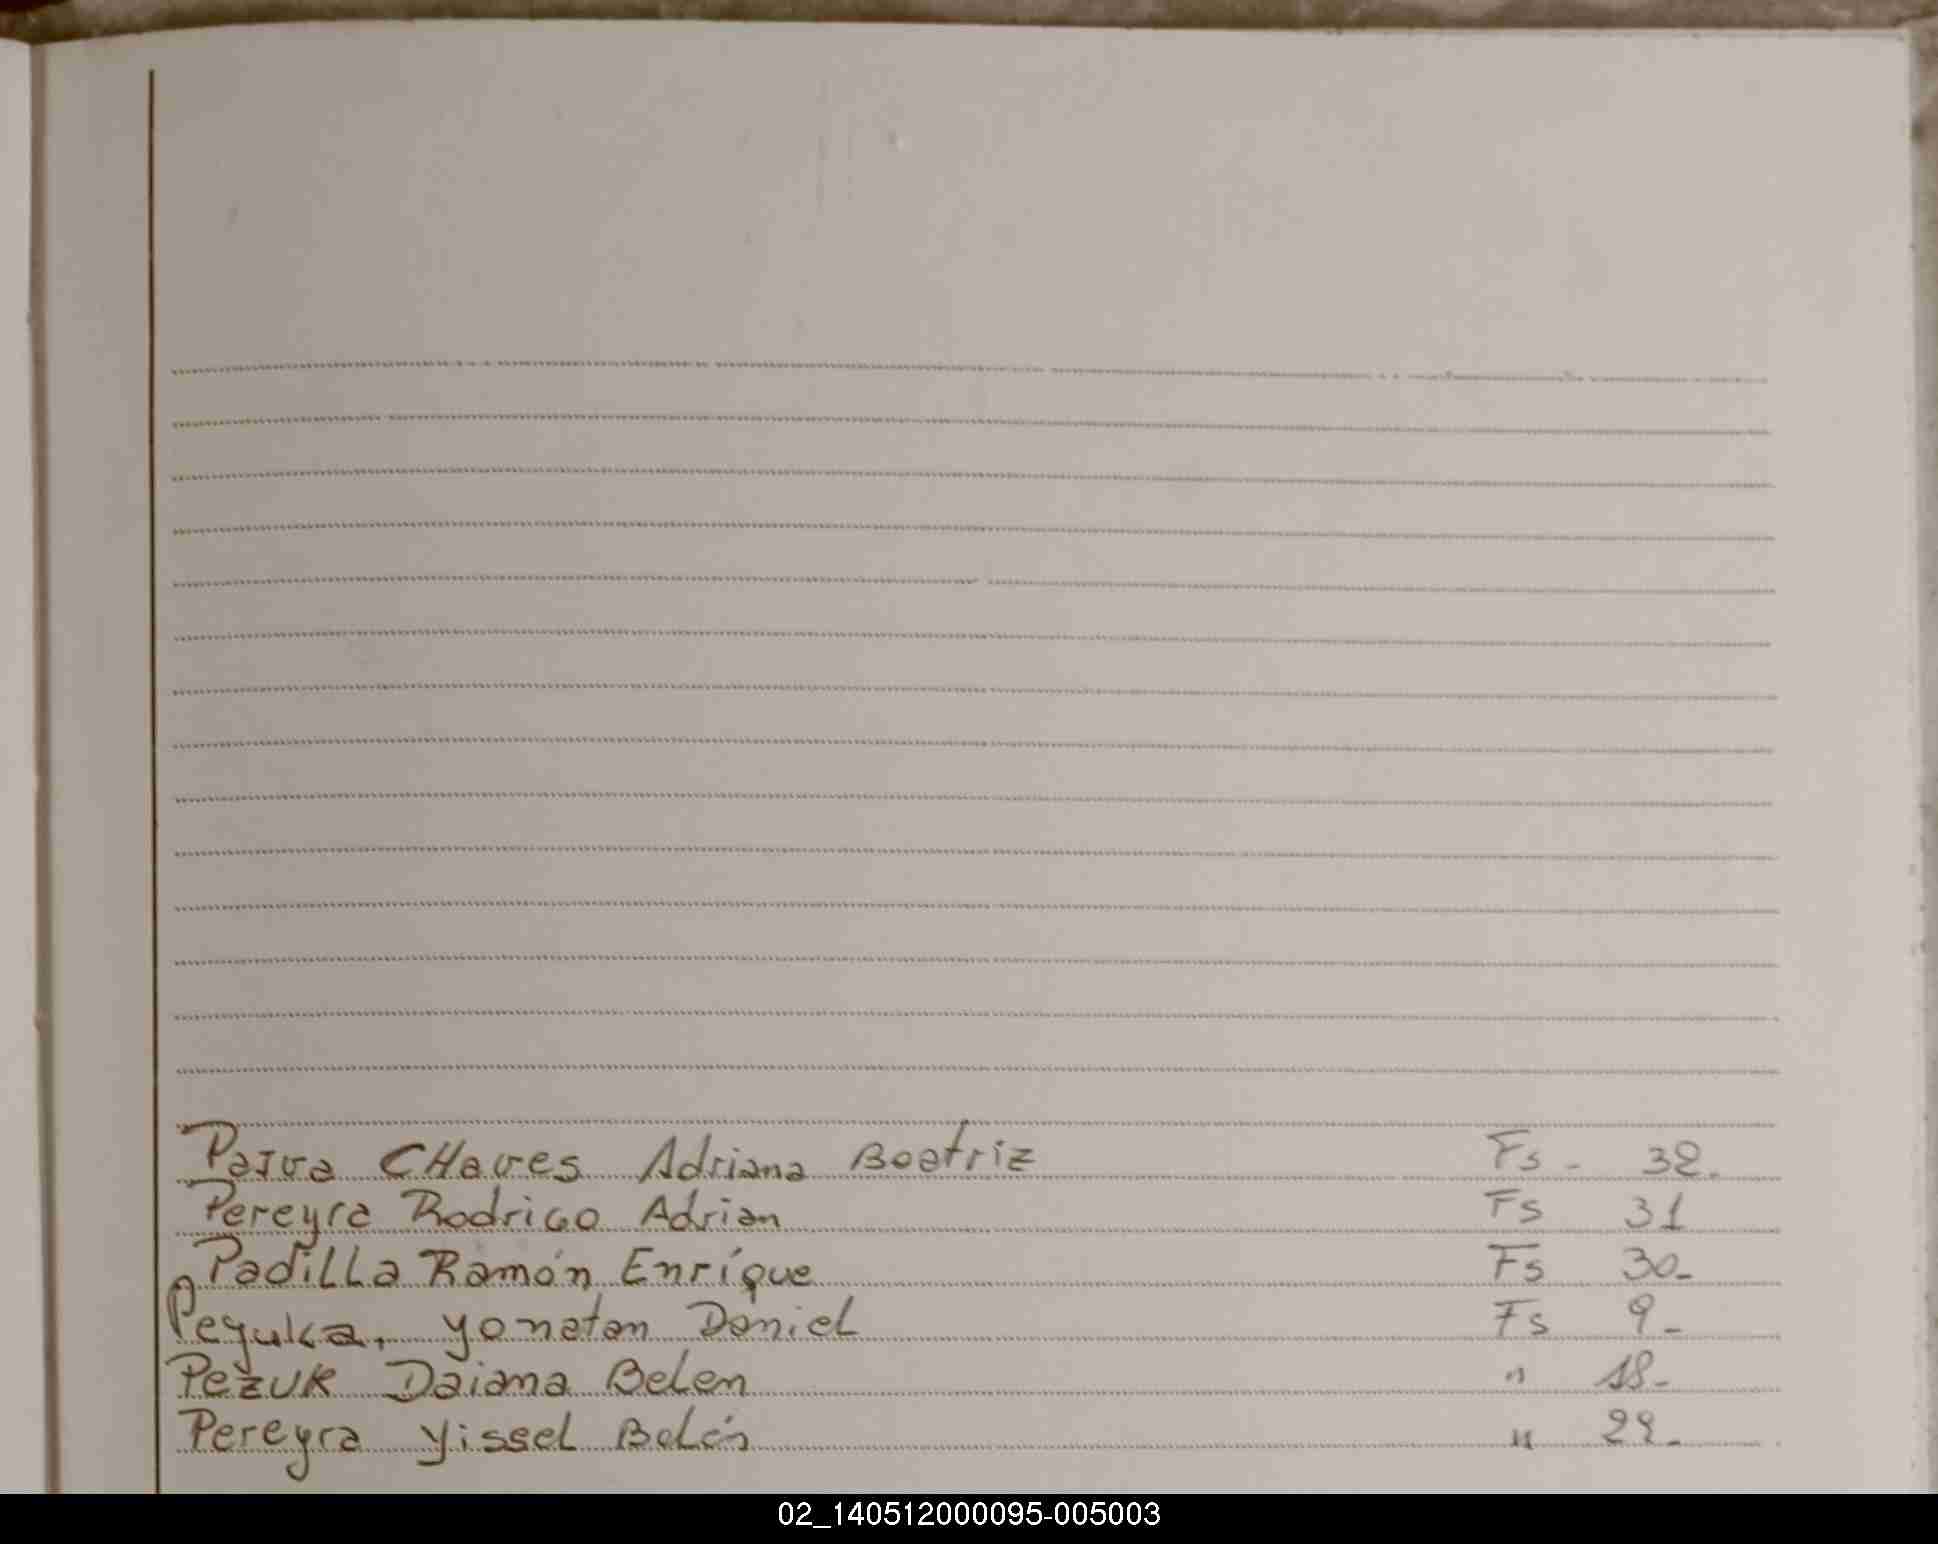 Paiva CHaves Adriana Beatriz Fs - 32.
Pereyra Rodrigo Adrian Fs 31
Padilla Ramón Enríque Fs 30-
yonatan Daniel Fs 9-
Pezuk Daiana Belen " 18-
Pereyra yissel Belén " 29-
02_140512000095-005003